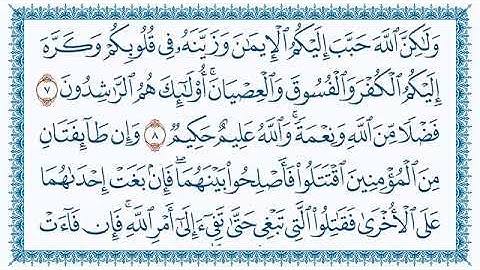 وَلَٰكِنَّ ٱللَّهَ حَبَّبَ إِلَيْكُمُ ٱلْإِيمَٰنَ وَزَيَّنَهُۥ فِى قُلُوبِكُمْ وَكَرَّهَ
إِلَيْكُمُ ٱلْكُفْرَ وَٱلْفُسُوقَ وَٱلْعِصْيَانَ ۚ أُو۟لَٰٓئِكَ هُمُ ٱلرَّٰشِدُونَ ٧
فَضْلًا مِّنَ ٱللَّهِ وَنِعْمَةً ۚ وَٱللَّهُ عَلِيمٌ حَكِيمٌ ٨ وَإِن طَآئِفَتَانِ
مِنَ ٱلْمُؤْمِنِينَ ٱقْتَتَلُوا۟ فَأَصْلِحُوا۟ بَيْنَهُمَا ۖ فَإِنۢ بَغَتْ إِحْدَىٰهُمَا
عَلَى ٱلْأُخْرَىٰ فَقَٰتِلُوا۟ ٱلَّتِى تَبْغِى حَتَّىٰ تَفِىٓءَ إِلَىٰٓ أَمْرِ ٱللَّهِ ۚ فَإِن فَآءَتْ